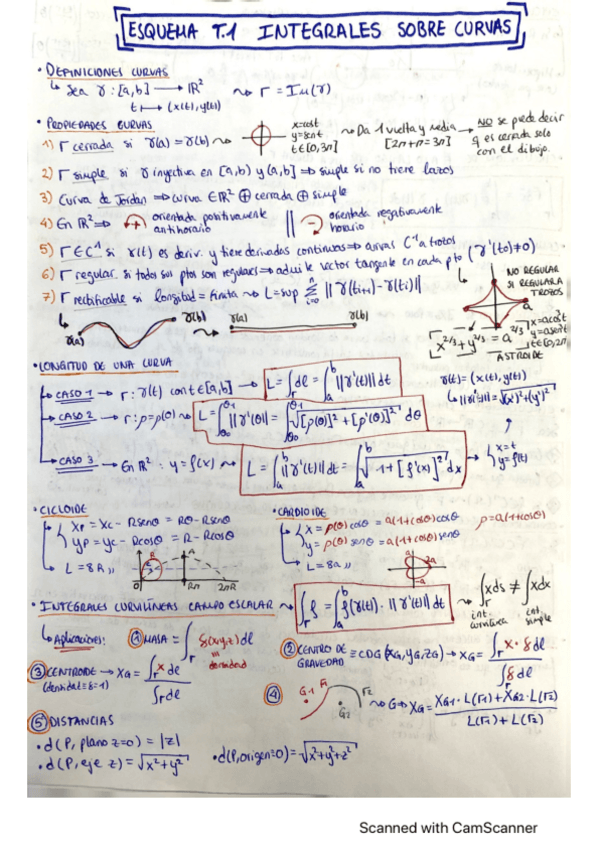 ESQUEMA T.1 INTEGRALES SOBRE CURVAS
• DEFINICIONES CURVAS
↳ Sea γ: [a,b] → ℝ² ⇝ Γ = Im(γ)
t ↦ (x(t), y(t))
• PROPIEDADES CURVAS
1) Γ cerrada si γ(a) = γ(b) ⇝
x=cost
y=sent
t∈[0,3π]
⇝ Da 1 vuelta y media
[2π+π=3π]
→ NO se puede decir
q es cerrada solo
con el dibujo.
2) Γ simple si γ inyectiva en [a,b) y (a,b] ⇒ simple si no tiene lazos
3) Curva de Jordan ⇒ curva ∈ ℝ² ⊕ cerrada ⊕ simple
4) En ℝ² ⇒
+
orientada positivamente
antihorario
||
−
orientada negativamente
horario
5) Γ ∈ C¹ si γ(t) es deriv. y tiene derivadas continuas ⇒ curvas C¹ a trozos
6) Γ regular. si todos sus ptos son regulares ⇒ admite vector tangente en cada pto (γ'(t₀)≠0)
7) Γ rectificable si longitud = finita ⇝ L = sup Σ ||γ(ti+1) − γ(ti)||
n
i=0
NO REGULAR
SI REGULAR A
TROZOS
a
γ(a)
γ(b)
γ(a)
γ(b)
x^2/3 + y^2/3 = a^2/3
x=acos³t
y=asen³t
t∈[0,2π]
ASTROIDE
• LONGITUD DE UNA CURVA
↳ CASO 1 → Γ: γ(t) con t∈[a,b] → L = ∫_Γ dl = ∫_a^b ||γ'(t)|| dt
γ(t) = (x(t), y(t))
↳ ||γ'(t)|| = √(x')²+(y')²
↳ CASO 2 → Γ: ρ=ρ(θ) ⇝ L = ∫_θ0^θ1 ||γ'(θ)|| = ∫_θ0^θ1 √[ρ(θ)]² + [ρ'(θ)]² dθ
↳ CASO 3 → En ℝ²: y = f(x) ⇝ L = ∫_a^b ||γ'(t)|| dt = ∫_a^b √1 + [f'(x)]² dx
x=t
y=f(t)
• CICLOIDE
xp = xc − Rsenθ = Rθ − Rsenθ
yp = yc − Rcosθ = R − Rcosθ
↳ L = 8R
R
0
Rπ
2πR
• CARDIOIDE
x = ρ(θ) cosθ = a(1+cosθ)cosθ
ρ = a(1+cosθ)
y = ρ(θ) senθ = a(1+cosθ)senθ
↳ L = 8a
a
2a
-a
• INTEGRALES CURVILÍNEAS CAMPO ESCALAR ⇝ ∫_Γ f = ∫_a^b f(γ(t)) · ||γ'(t)|| dt
∫_Γ xds ≠ ∫xdx
int curvilínea
int simple
↳ Aplicaciones:
① MASA = ∫_Γ δ(x,y,z) dl
densidad
② CENTRO DE
GRAVEDAD
≡ CDG (xG, yG, zG) → xG = ∫_Γ x·δ dl / ∫_Γ δ dl
③ CENTROIDE → xG = ∫_Γ x dl / ∫_Γ dl
(densidad=δ=1)
④
G1
Γ1
Γ2
G2
⇝ G ⇒ XG = XG1 · L(Γ1) + XG2 · L(Γ2) / L(Γ1) + L(Γ2)
⑤ DISTANCIAS
• d(P, plano z=0) = |z|
• d(P, eje z) = √x²+y²
• d(P, origen=0) = √x²+y²+z²
Scanned with CamScanner